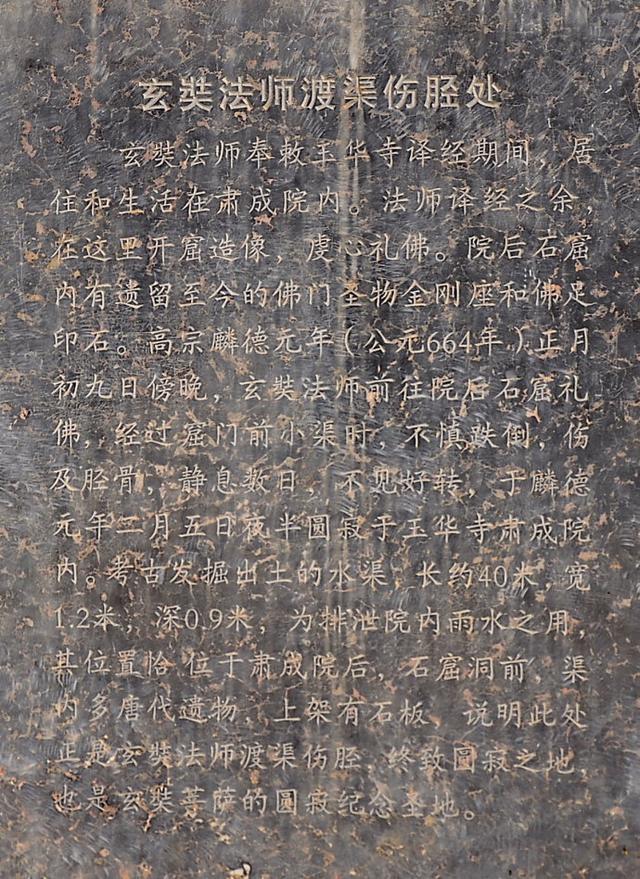 玄奘法师渡渠伤胫处
玄奘法师奉敕玉华寺译经期间，居
住和生活在肃成院内。法师译经之余，
在这里开窟造像，虔心礼佛。院后石窟
内有遗留至今的佛门圣物金刚座和佛足
印石。高宗麟德元年（公元664年）正月
初九日傍晚，玄奘法师前往院后石窟礼
佛，经过窟门前小渠时，不慎跌倒，伤
及胫骨，静息数日，不见好转，于麟德
元年二月五日夜半圆寂于玉华寺肃成院
内。考古发掘出土的水渠，长约40米，宽
1.2米，深0.9米，为排泄院内雨水之用，
其位置恰位于肃成院后，石窟洞前，渠
内多唐代遗物，上架有石板，说明此处
正是玄奘法师渡渠伤胫，终致圆寂之地，
也是玄奘菩萨的圆寂纪念圣地。